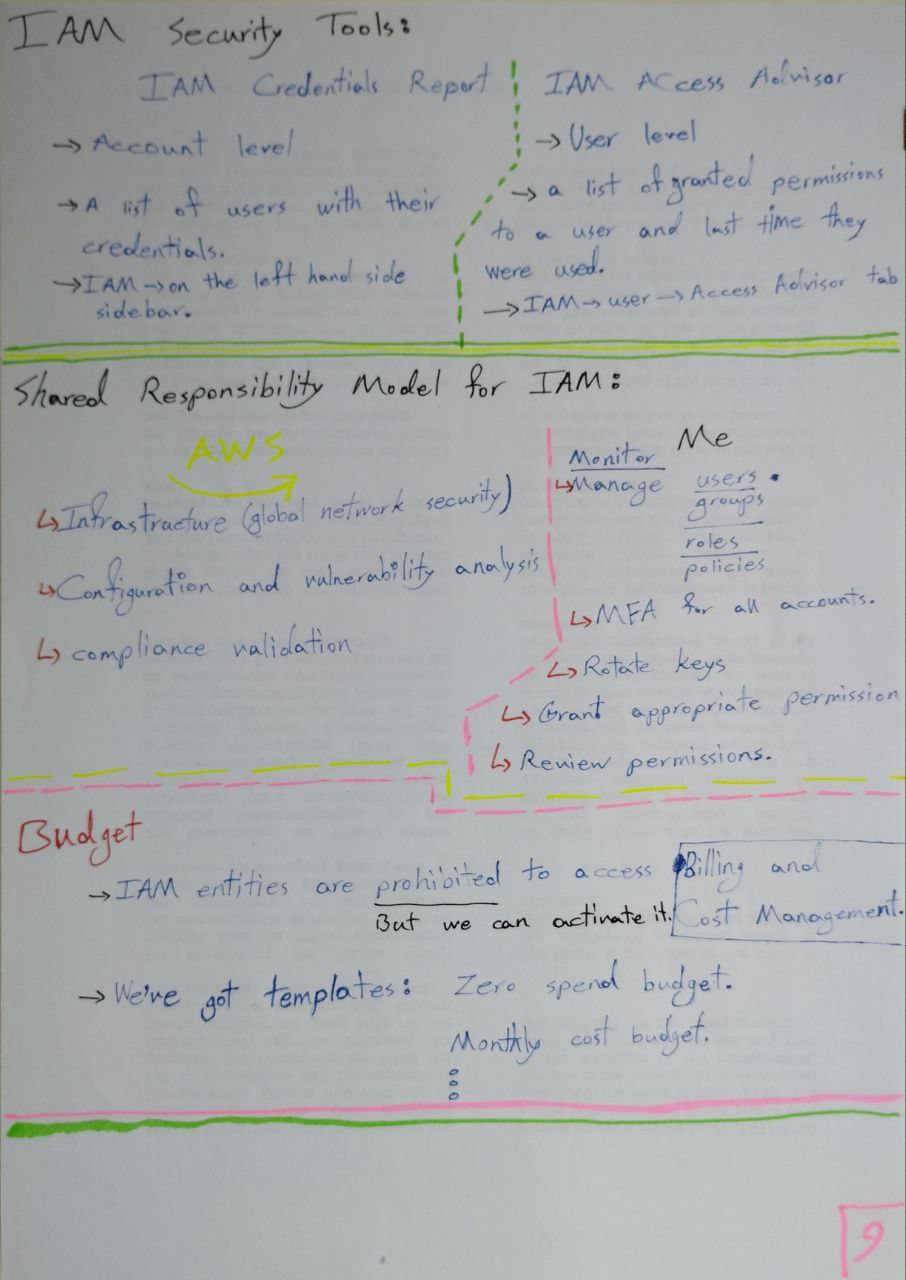 IAM Security Tools:
IAM Credentials Report
→ Account level
→ A list of users with their
credentials.
→ IAM → on the left hand side
sidebar.
IAM Access Advisor
→ User level
→ a list of granted permissions
to a user and last time they
were used.
→ IAM → user → Access Advisor tab
Shared Responsibility Model for IAM:
AWS
↳ Infrastracture (global network security)
↳ Configuration and vulnerability analysis
↳ compliance validation
Me
Monitor
↳ Manage users.
groups
roles
policies
↳ MFA for all accounts.
↳ Rotate keys
↳ Grant appropriate permission
↳ Review permissions.
Budget
→ IAM entities are prohibited to access Billing and
But we can activate it. Cost Management.
→ We've got templates: Zero spend budget.
Monthly cost budget.
9